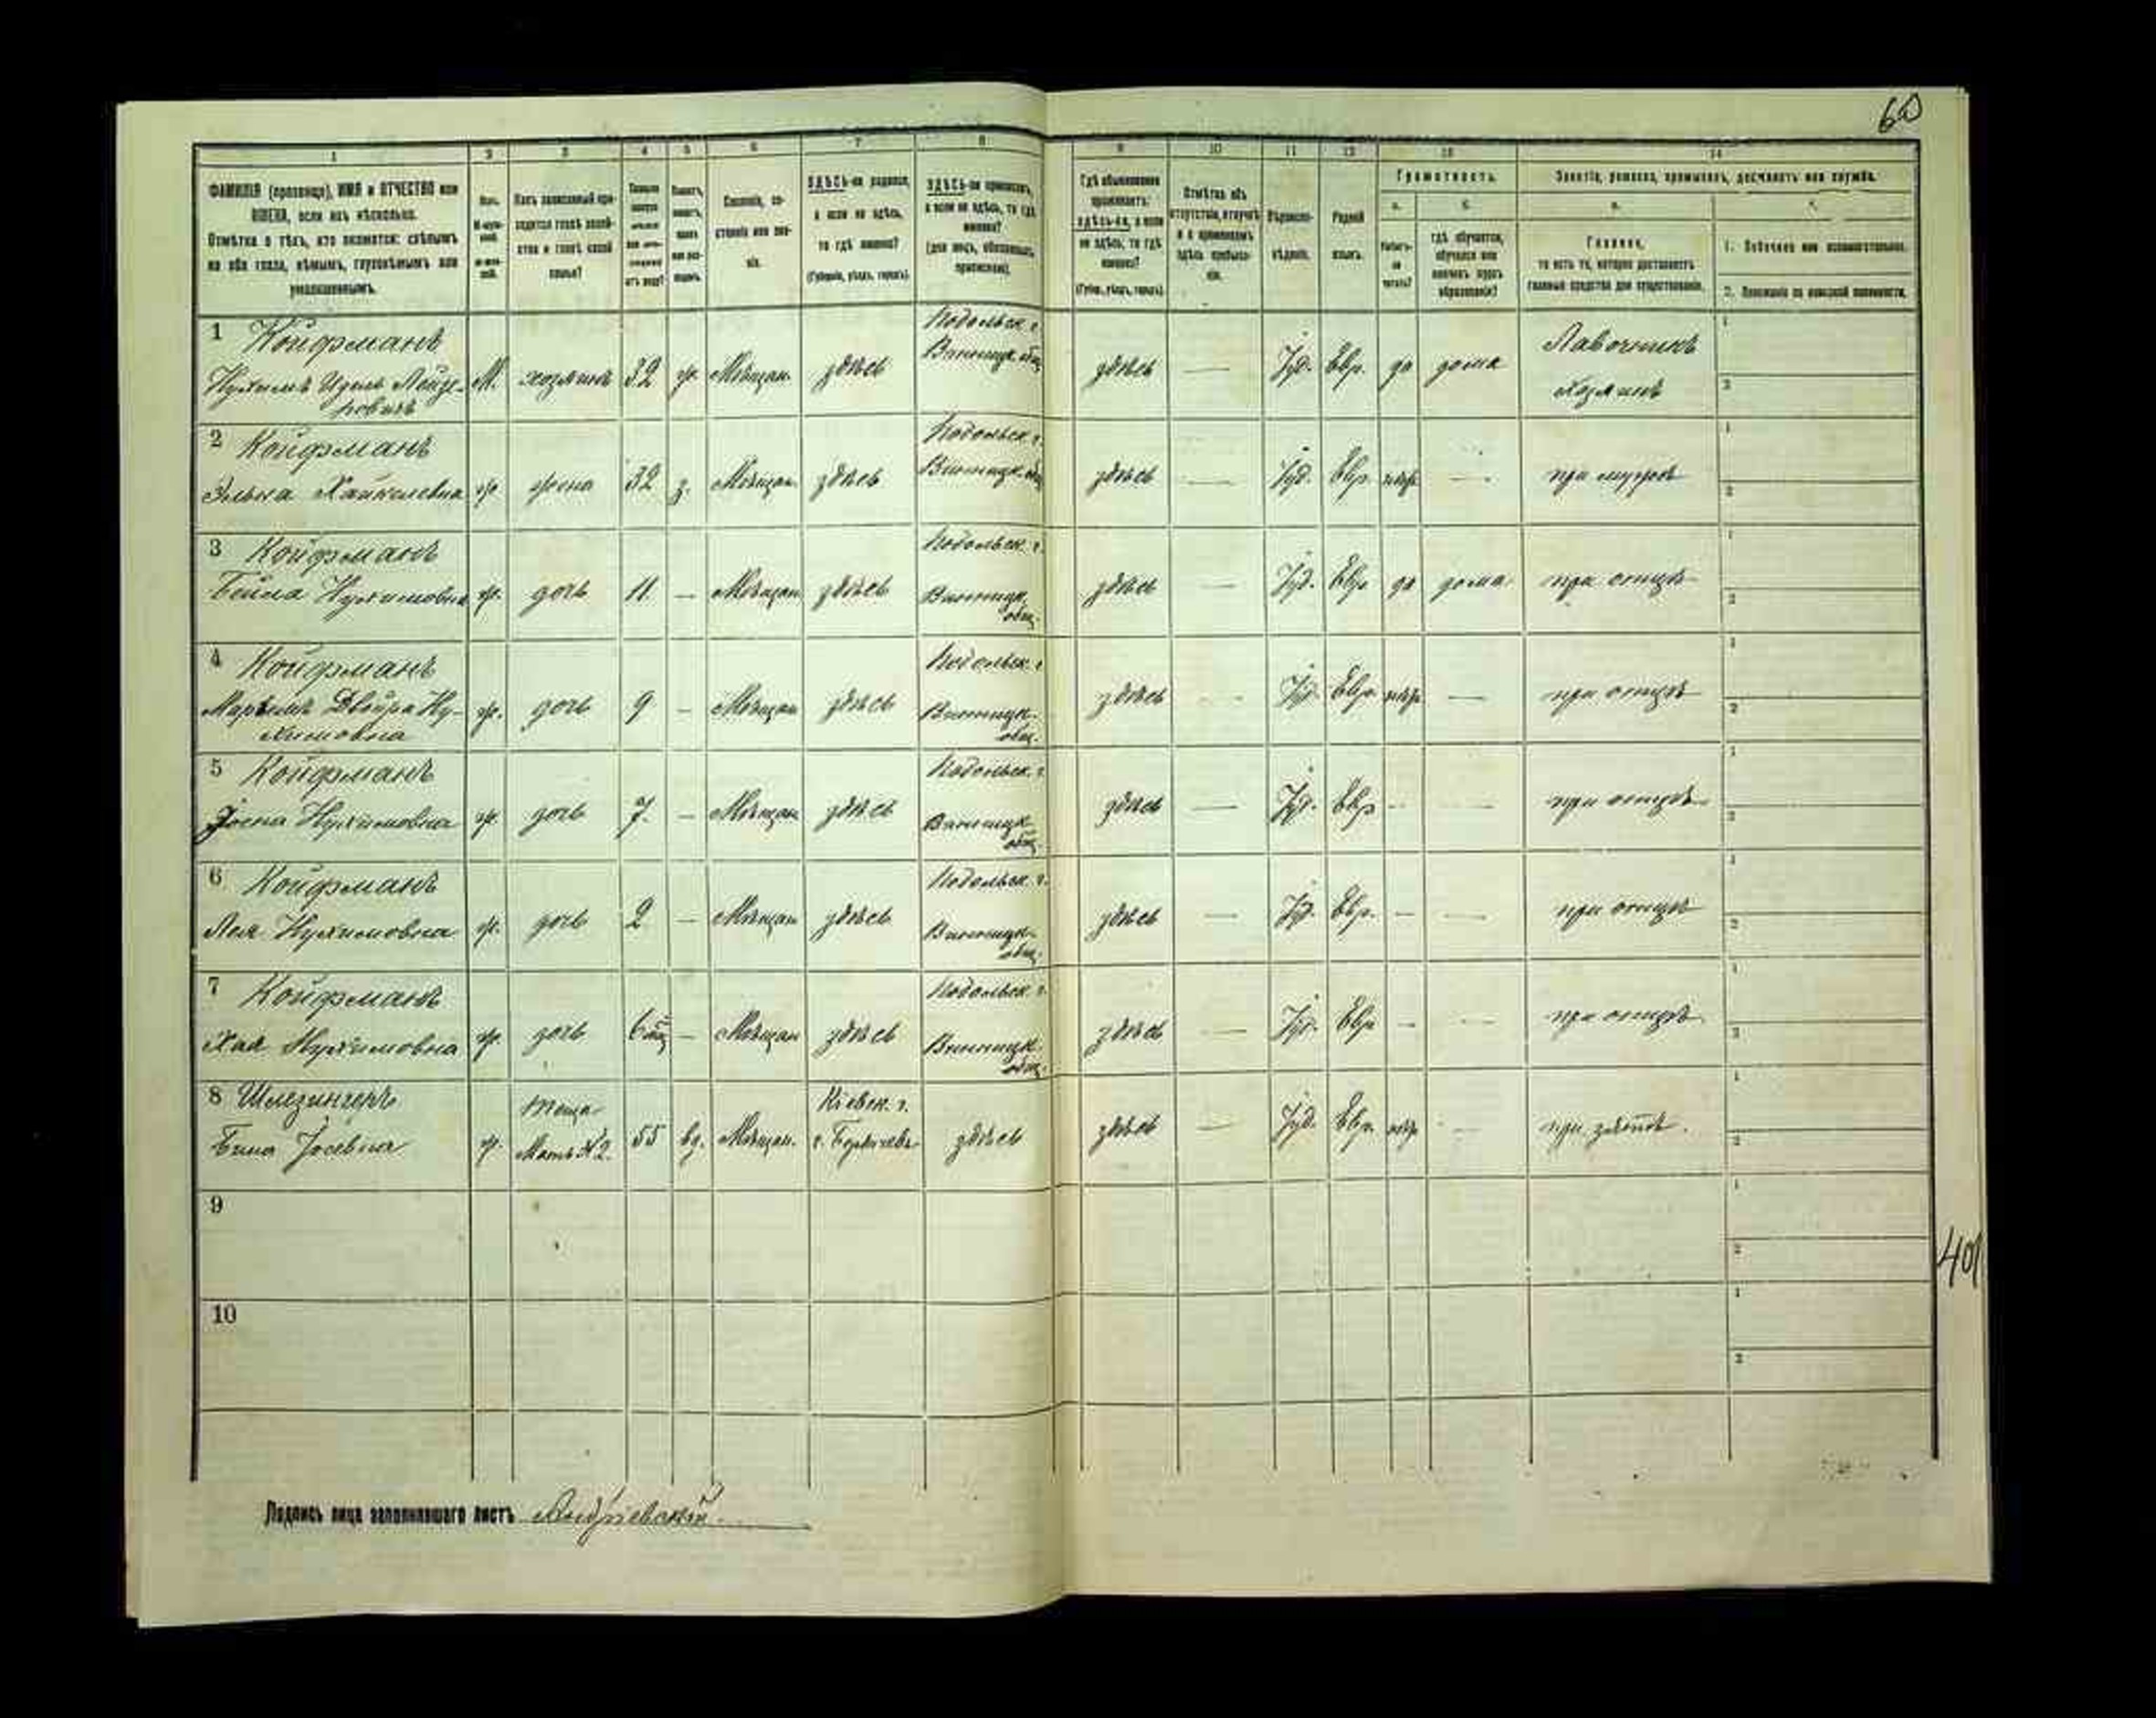 60
1 2 3 4 5 6 7 8 9 10 11 12 13 14
ФАМИЛІЯ (прозвище), ИМЯ и ОТЧЕСТВО или
ИМЕНА, если ихъ нѣсколько.
Отмѣтка о тѣхъ, кто окажется: слѣпымъ
на оба глаза, нѣмымъ, глухонѣмымъ или
умалишеннымъ.
Полъ.
Какъ записанный при-
ходится главѣ хозяй-
ства и главѣ своей
семьи?
Сословіе, со-
стояніе или зва-
ніе.
ЗДѢСЬ-ли родился,
а если не здѣсь,
то гдѣ именно?
(Губернія, уѣздъ, городъ).
ЗДѢСЬ-ли приписанъ,
а если не здѣсь, то гдѣ
именно?
(для лицъ, обязанныхъ
припискою).
Гдѣ обыкновенно
проживаетъ:
здѣсь-ли, а если
не здѣсь, то гдѣ
именно?
(Губер., уѣздъ, городъ).
Отмѣтка объ
отсутствіи, отлучкѣ
и о временномъ
здѣсь пребыва-
ніи.
Вѣроиспо-
вѣданіе.
Родной
языкъ.
Грамотность.
а. б.
Умѣетъ-
ли
читать?
гдѣ обучается,
обучался или
кончилъ курсъ
образованія?
Занятіе, ремесло, промыселъ, должность или служба.
Главное,
то есть то, которое доставляетъ
главныя средства для существованія.
1. Побочное или вспомогательное.
2. Положеніе по воинской повинности.
1 Койфманъ Подольск. г. Лавочникъ 1
Нухимъ Идель Лейзе- М. хозяинъ 32 ж. Мѣщан. здѣсь Винницк. общ. здѣсь — Іуд. Евр. да дома хозяинъ 2
ровичъ
2 Койфманъ Подольск. г. 1
Элька Хайкелевна ж. жена 32 з. Мѣщан. здѣсь Винницк. общ. здѣсь — Іуд. Евр. нѣтъ — при мужѣ 2
3 Койфманъ Подольск. г. 1
Бейла Нухимовна ж. дочь 11 — Мѣщан здѣсь Винницк. общ. здѣсь — Іуд. Евр да дома при отцѣ 2
4 Койфманъ Подольск. г. 1
Двойра Ну- ж. дочь 9 — Мѣщан здѣсь Винницк. общ. здѣсь — Іуд. Евр. нѣтъ — при отцѣ 2
химовна
5 Койфманъ Подольск. г. 1
Нухимовна ж. дочь 7. — Мѣщан здѣсь Винницк общ. здѣсь — Іуд. Евр — — при отцѣ 2
6 Койфманъ Подольск. г. 1
Лея Нухимовна ж. дочь 2 — Мѣщан здѣсь Винницк. общ. здѣсь — Іуд. Евр. — — при отцѣ 2
7 Койфманъ Подольск. г. 1
Хая Нухимовна ж. дочь 6 мѣ — Мѣщан здѣсь Винницк. общ. здѣсь — Іуд. Евр — — при отцѣ 2
8 Шлезингеръ теща Кіевск. г. 1
Бина Іосевна ж. Мать № 2. 55 вд. Мѣщан. г. Бердичевъ здѣсь здѣсь — Іуд. Евр. нѣтъ — при зятѣ. 2
9 1
2
401
10 1
2
Подпись лица заполнявшаго листъ Андріевскій.